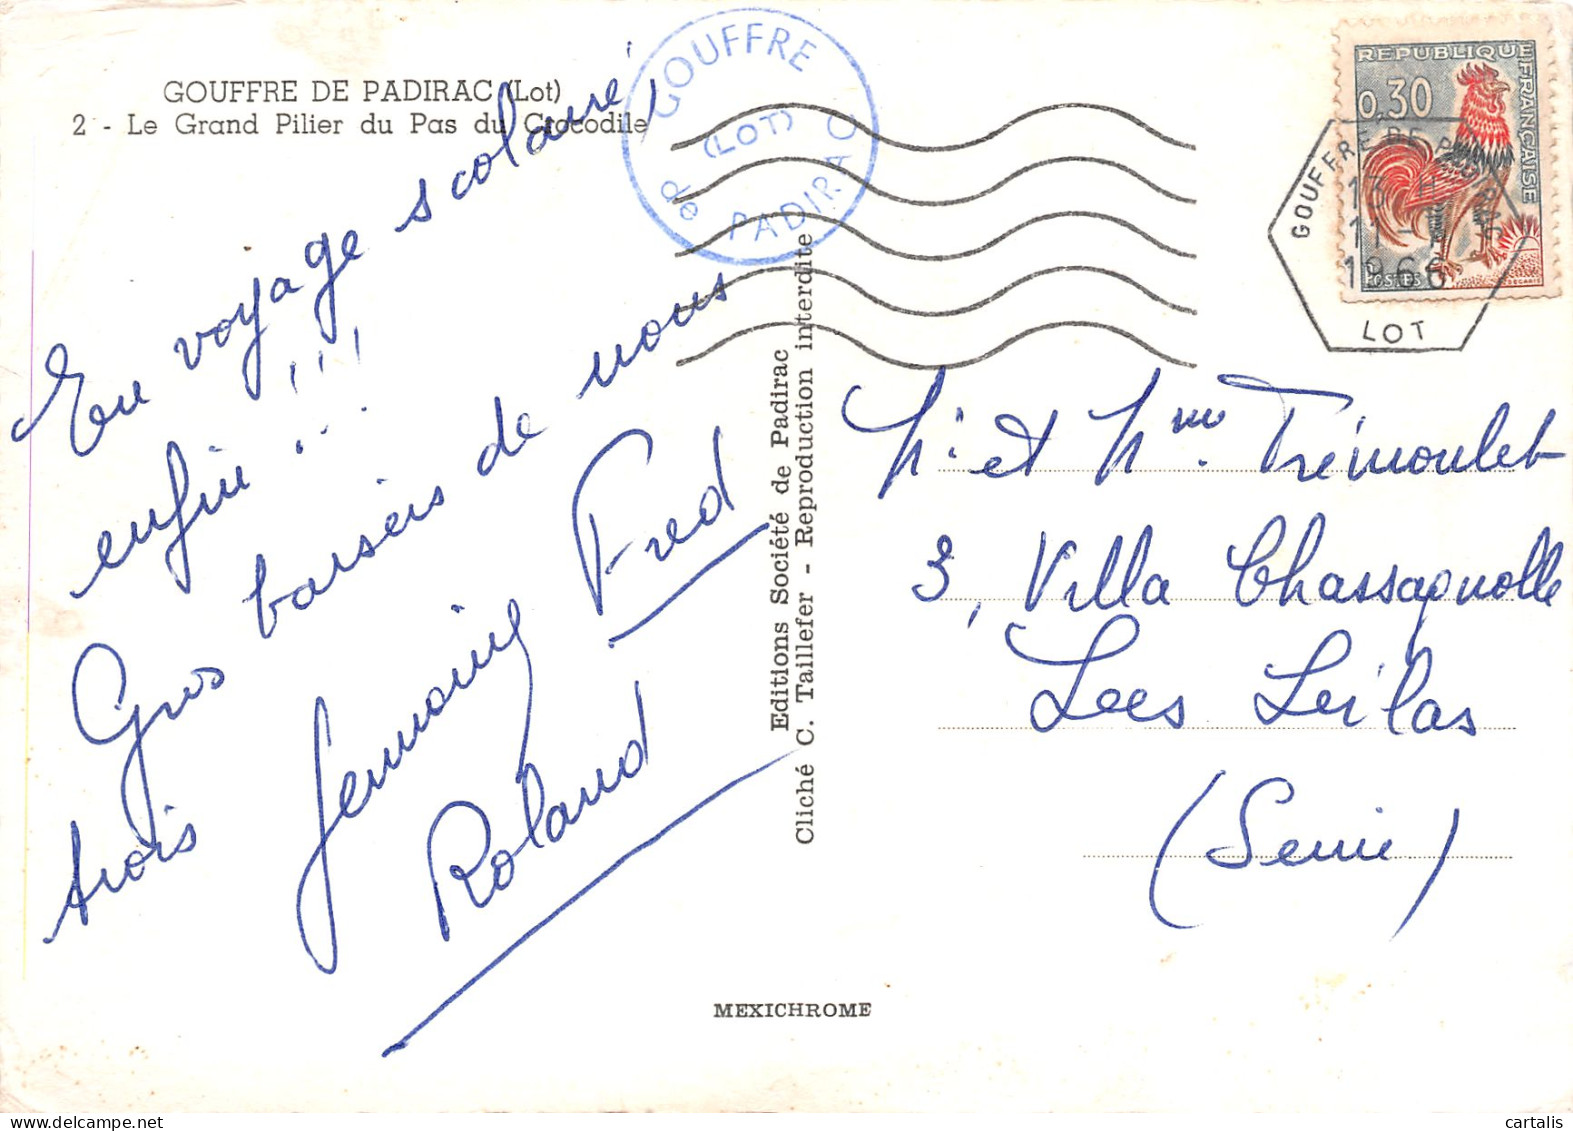 GOUFFRE DE PADIRAC (Lot)
2 - Le Grand Pilier du Pas du Crocodile
GOUFFRE
DE
(LOT)
PADIRAC
REPUBLIQUE FRANÇAISE
0,30
POSTES
DECARIS
GOUFFRE DE PADIRAC
13 H
11 -
1966
LOT
En voyage scolaire
enfin !!!
Gros baisers de nous
trois
Germaine Fred
Roland
Editions Société de Padirac
Cliché C. Taillefer - Reproduction interdite
Mr et Mme Trémoulet
3, Villa Chassagnolle
Les Lilas
(Seine)
MEXICHROME
cartalis